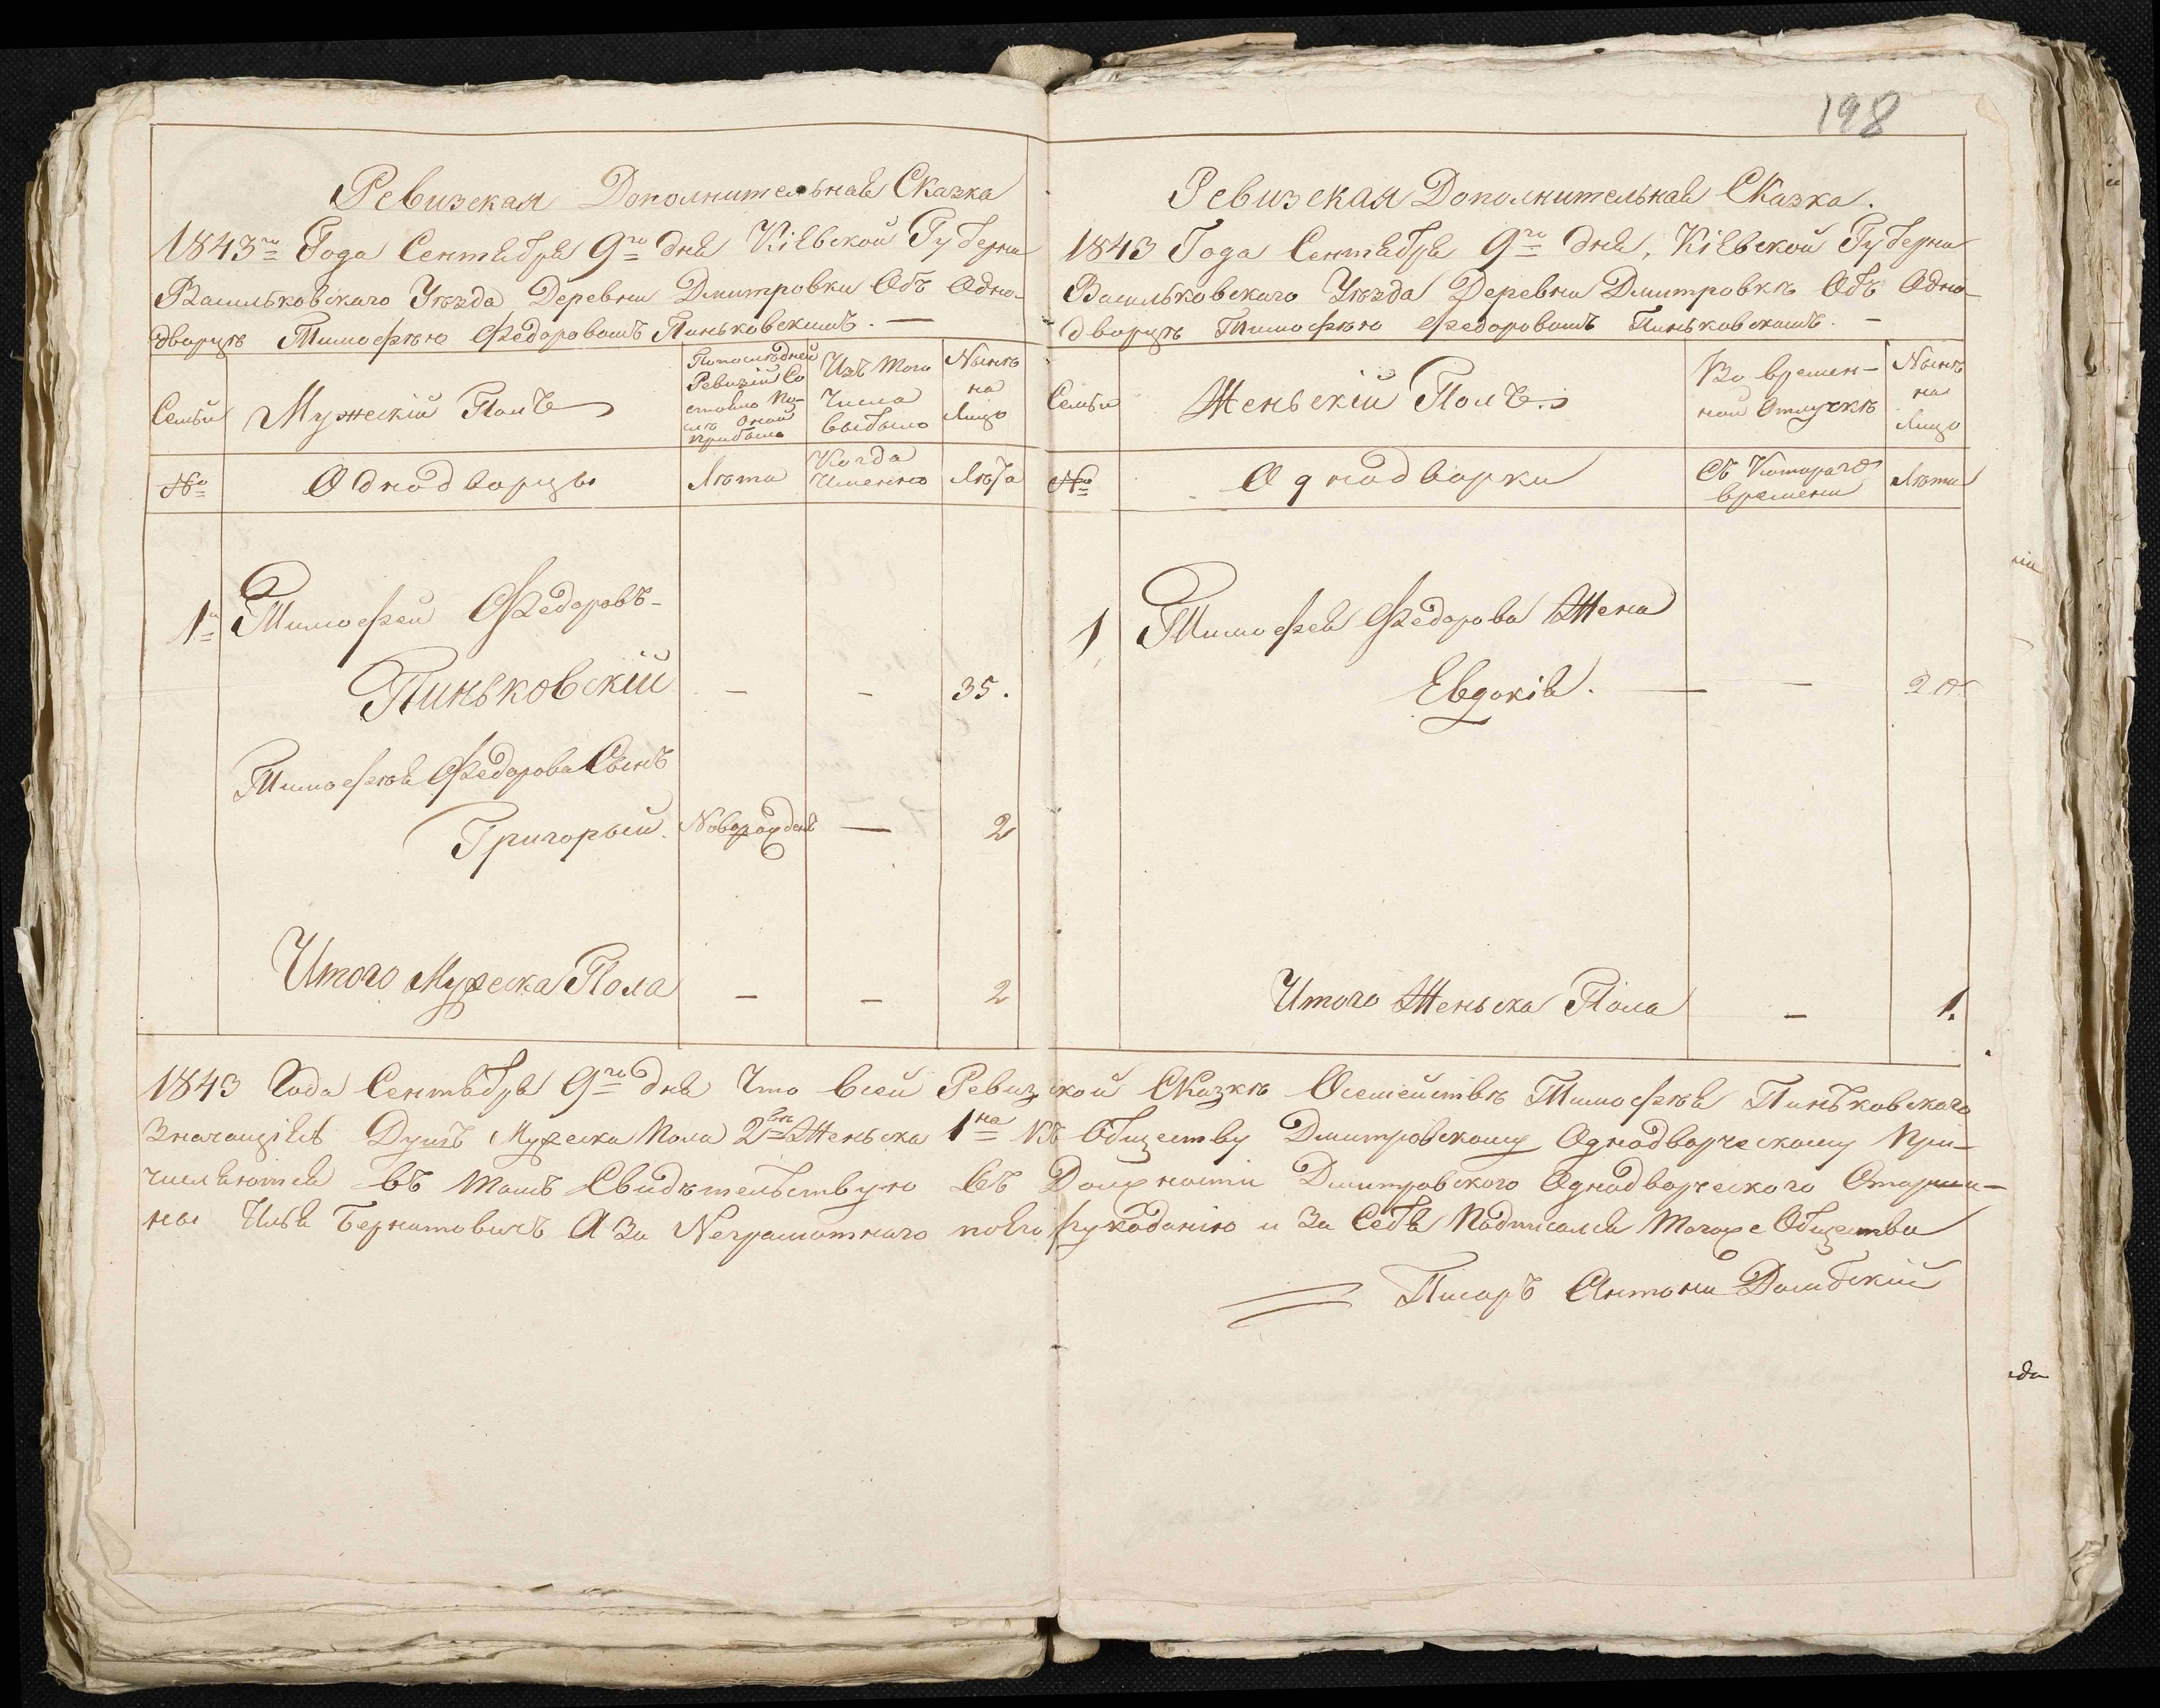 198
Ревизская Дополнительная Сказка
1843го Года Сентября 9го дня Кіевской Губерни
Васильковскаго Уѣзда Деревни Дмитровки Объ Одно-
дворцѣ Тимофѣю Федоровомъ Пиньковскимъ. —
Семьи
Мужескій Полъ
Попослѣдней
Ревизіи Со
стояло По-
слѣ оной
прибыло
Изъ того
Числа
выбыло
Нынѣ
на
Лицо
№
Однодворцы
Лѣта
Когда
Именно
Лѣта
1й Тимофей Федоровъ-
Пиньковскій — — 35.
Тимофѣя Федорова Сынъ
Григорый. Новорожденъ — 2
Итого Мужеска Пола — — 2
Ревизская Дополнительная Сказка.
1843 Года Сентября 9го дня, Кіевской Губерни
Васильковскаго Уѣзда Деревни Дмитровкѣ Объ Одно-
дворцѣ Тимофѣю Федоровомъ Пиньковскомъ. —
Семьи
Женьскій Полъ.
Во времен-
ной Отлучкѣ
Нынѣ
на
Лицо
№
Однодворки
Съ Котораго
времени
Лѣта
1 Тимофея Федорова Жена
Евдокія. — —
Итого Женьска Пола — 1.
1843 Года Сентября 9го дня Что всей Ревизской Сказкѣ Осемействѣ Тимофѣя Пиньковскаго
Значащіяся Душъ Мужеска Пола 2вѣ Женьска 1на Къ Обществу Дмитровскому Однодворческому При-
числяются въ томъ Свидѣтельствую Въ Должности Дмитровского Однодворческого Старши-
ны Илья Бернатовичъ А За Неграмотнаго поЕго рукоданію и За Себя Подписался Тогоже Общества
Писаръ Антони Домбскій